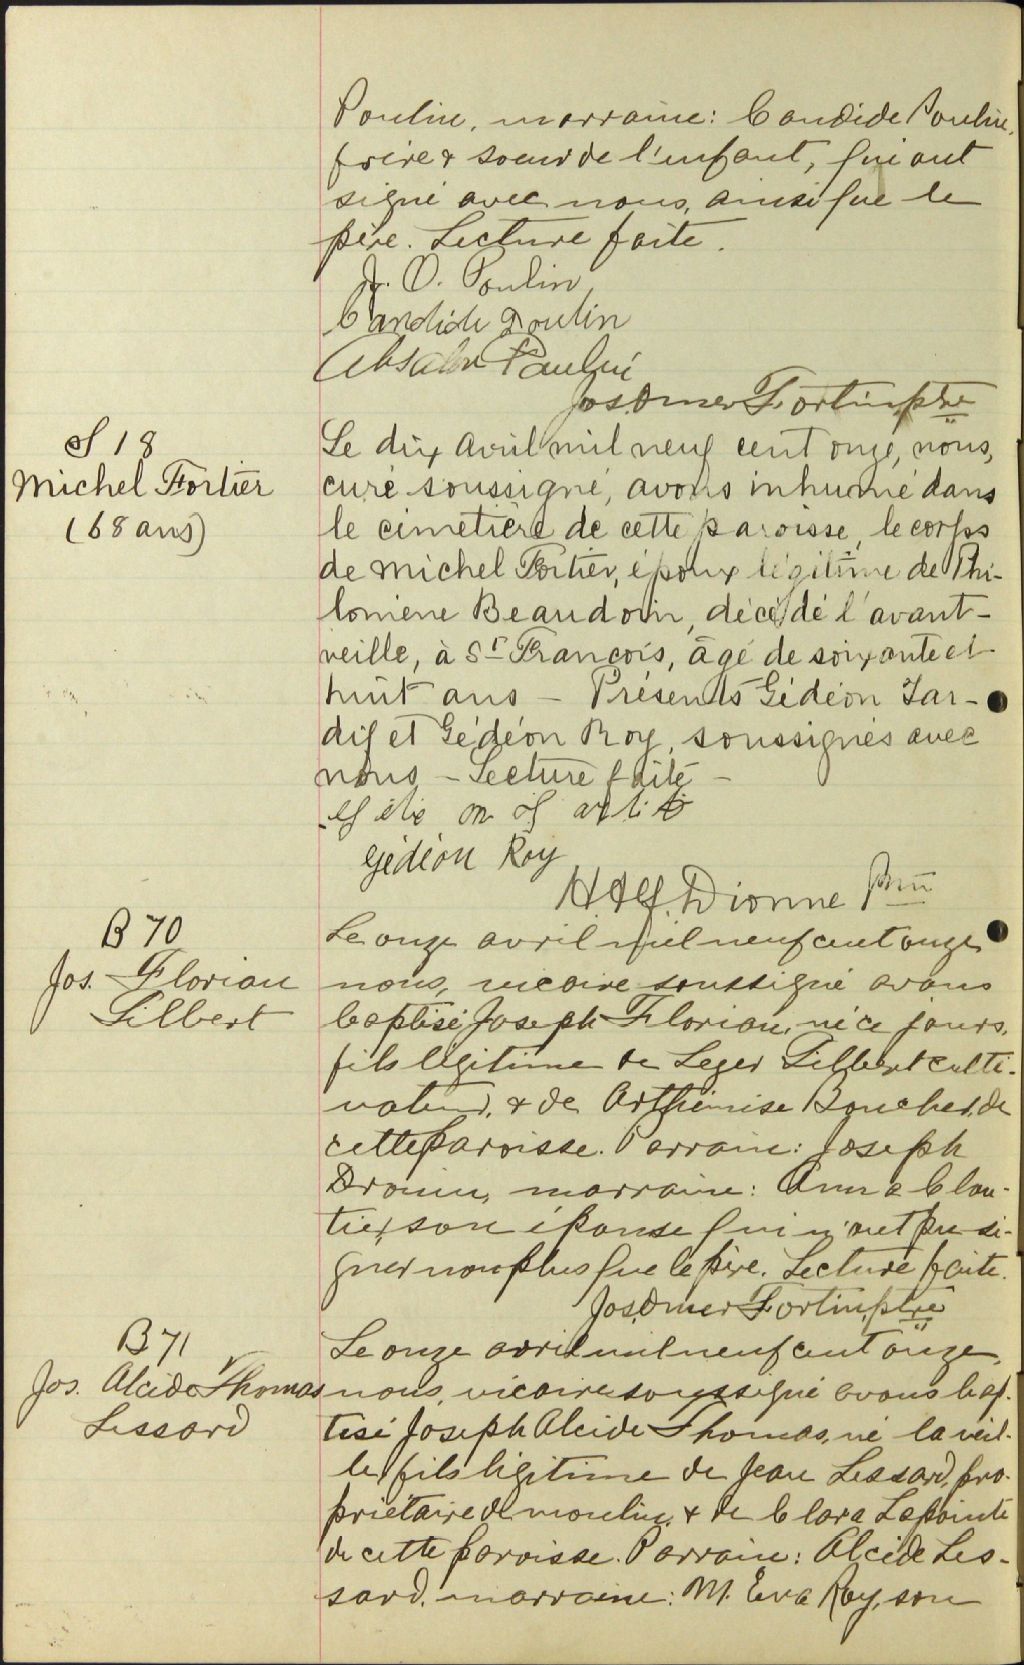 Poulin, marraine: Candide Poulin,
frère & soeur de l'enfant, qui ont
signé avec nous, ainsi que le
père. Lecture faite.
J. O. Poulin
Candide Poulin
Absalon Poulin
Jos. Omer Fortin, ptre
S 18
Michel Fortier
(68 ans)
Le dix avril mil neuf cent onze, nous,
curé soussigné, avons inhumé dans
le cimetière de cette paroisse, le corps
de Michel Fortier, époux légitime de Phi-
lomène Beaudoin, décédé l'avant-
veille, à St François, âgé de soixante et
huit ans - Présents Gédéon Tar-
dif et Gédéon Roy, soussignés avec
nous - Lecture faite -
Gédéon Roy
H Alf. Dionne Ptre
B 70
Jos. Florian
Gilbert
Le onze avril mil neuf cent onze
nous, vicaire soussigné avons
baptisé Joseph Florian, né ce jours,
fils légitime de Leger Gilbert culti-
vateur, & de Arthémise Boucher, de
cette paroisse. Parrain: Joseph
Drouin, marraine: Anna Clou-
tier, son épouse qui n'ont pu si-
gner non plus que le père. Lecture faite.
Jos. Omer Fortin, ptre
B 71
Jos. Alcide Thomas
Lessard
Le onze avril mil neuf cent onze,
nous, vicaire soussigné avons bap-
tisé Joseph Alcide Thomas, né la veil-
le, fils légitime de Jean Lessard, pro-
priétaire de moulin, & de Clara Lapointe
de cette paroisse. Parrain: Alcide Les-
sard, marraine: M. Eva Roy, son